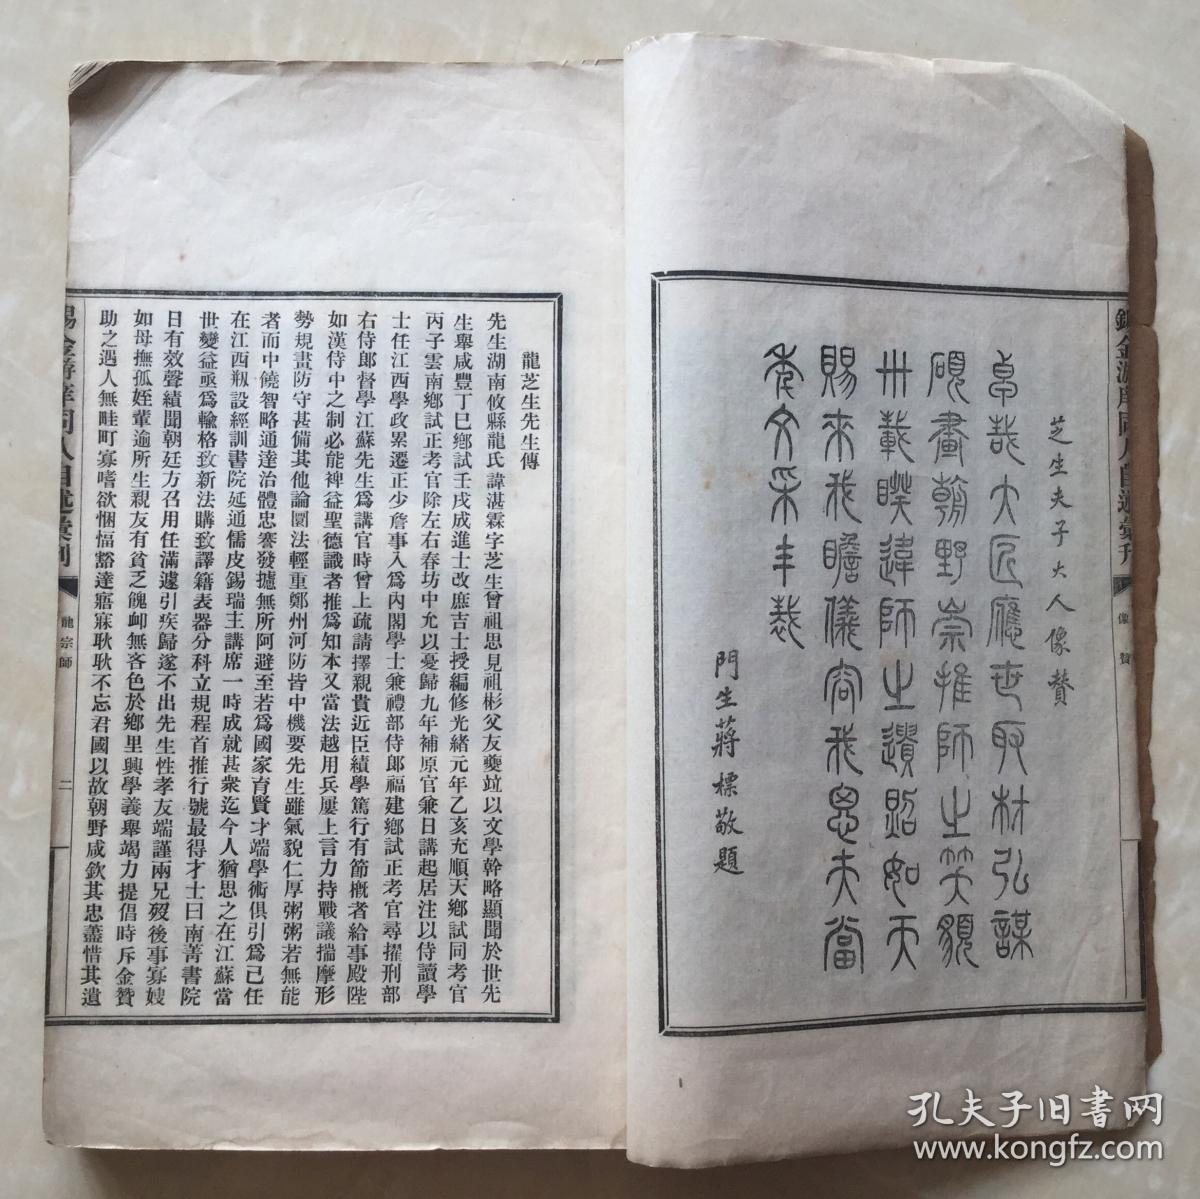 芝生夫子大人像贊
卓哉大匠應世取材弘謀
碩畫朝野崇推師之笑貌
卅載睽違師之遺照如天
賜來我瞻儀容我思夫當
年文采丰裁
門生蔣楳敬題
錫金游庠同人自述彙刊
像贊
龍芝生先生傳
先生湖南攸縣龍氏諱湛霖字芝生曾祖思見祖彬父友夔竝以文學幹略顯聞於世先
生舉咸豐丁巳鄕試壬戌成進士改庶吉士授編修光緒元年乙亥充順天鄕試同考官
丙子雲南鄕試正考官除左右春坊中允以憂歸九年補原官兼日講起居注以侍讀學
士任江西學政累遷正少詹事入爲內閣學士兼禮部侍郎福建鄕試正考官尋擢刑部
右侍郎督學江蘇先生爲講官時曾上疏請擇親貴近臣績學篤行有節槪者給事殿陛
如漢侍中之制必能裨益聖德識者推爲知本又當法越用兵屢上言力持戰議揣摩形
勢規畫防守甚備其他論圜法輕重鄭州河防皆中機要先生雖氣貌仁厚粥粥若無能
者而中饒智略通達治體忠謇發攄無所阿避至若爲國家育賢才端學術俱引爲已任
在江西瓶設經訓書院延通儒皮錫瑞主講席一時成就甚衆迄今人猶思之在江蘇當
世變益亟爲輸格致新法購致譯籍表器分科立規程首推行號最得才士曰南菁書院
日有效聲績聞朝廷方召用任滿遽引疾歸遂不出先生性孝友端謹兩兄歿後事寡嫂
如母撫孤姪輩逾所生親友有貧乏餽卹無吝色於鄕里興學義舉竭力提倡時斥金贊
助之遇人無畦町寡嗜欲悃愊豁達寤寐耿耿不忘君國以故朝野咸欽其忠藎惜其遺
錫金游庠同人自述彙刊
龍宗師
二
孔夫子旧书网
www.kongfz.com